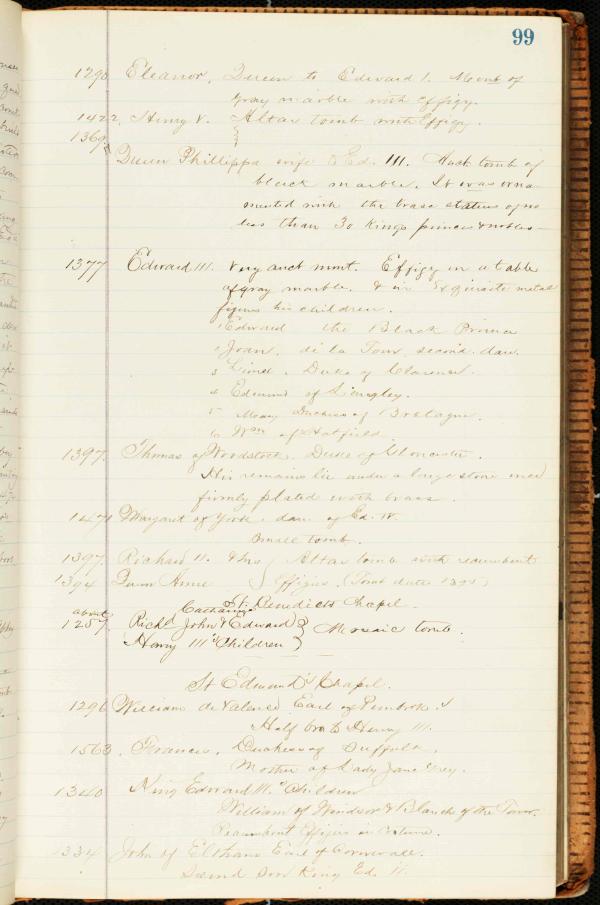 99
1290 Eleanor, Queen to Edward I. Mont of
gray marble with effigy.
1422, Henry V. Altar tomb with Effigy.
1369
Queen Phillippa wife to Ed. III. Hast tomb of
black marble. It was orna
mented with the brase statues of no
less than 30 Kings princes & nobles—
1377 Edward III. Very anct mont. Effigy on a table
of gray marble. & in exquisite metal
figures his children.
1 Edward the Black Prince
2 Joan, de la Tour, second dau.
3 Lionel, Duke of Clarence.
4 Edmund of Langley.
5 Mary Duchess of Bretagne.
6 Wm of Hatfield.
1397. Thomas of Woodstock, Duke of Gloucester.
His remains lie under a large stone once
firmly plated with brass.
1471 Margaret of York, dau. of Ed. IV.
Small tomb.
1397. Richard II. & his Altar tomb with recumbent
1394 Queen Anne Effigies. (Tomb date 1395)
St. Benedicts Chapel.
about Catharine
1257. Richd John & Edward Mosaic tomb.
Henry III's Children
St Edmund's Chapel.
1296 William de Valence Earl of Pembroke &
Half bro to Henry III.
1563. Frances, Duchess of Suffolk,
Mother of Lady Jane Grey.
1340 King Edward III.'s Children
William of Windsor & Blanch of the Tower.
Effigies in costume.
1334 John of Eltham Earl of Cornwall.
Second Son King Ed. II.